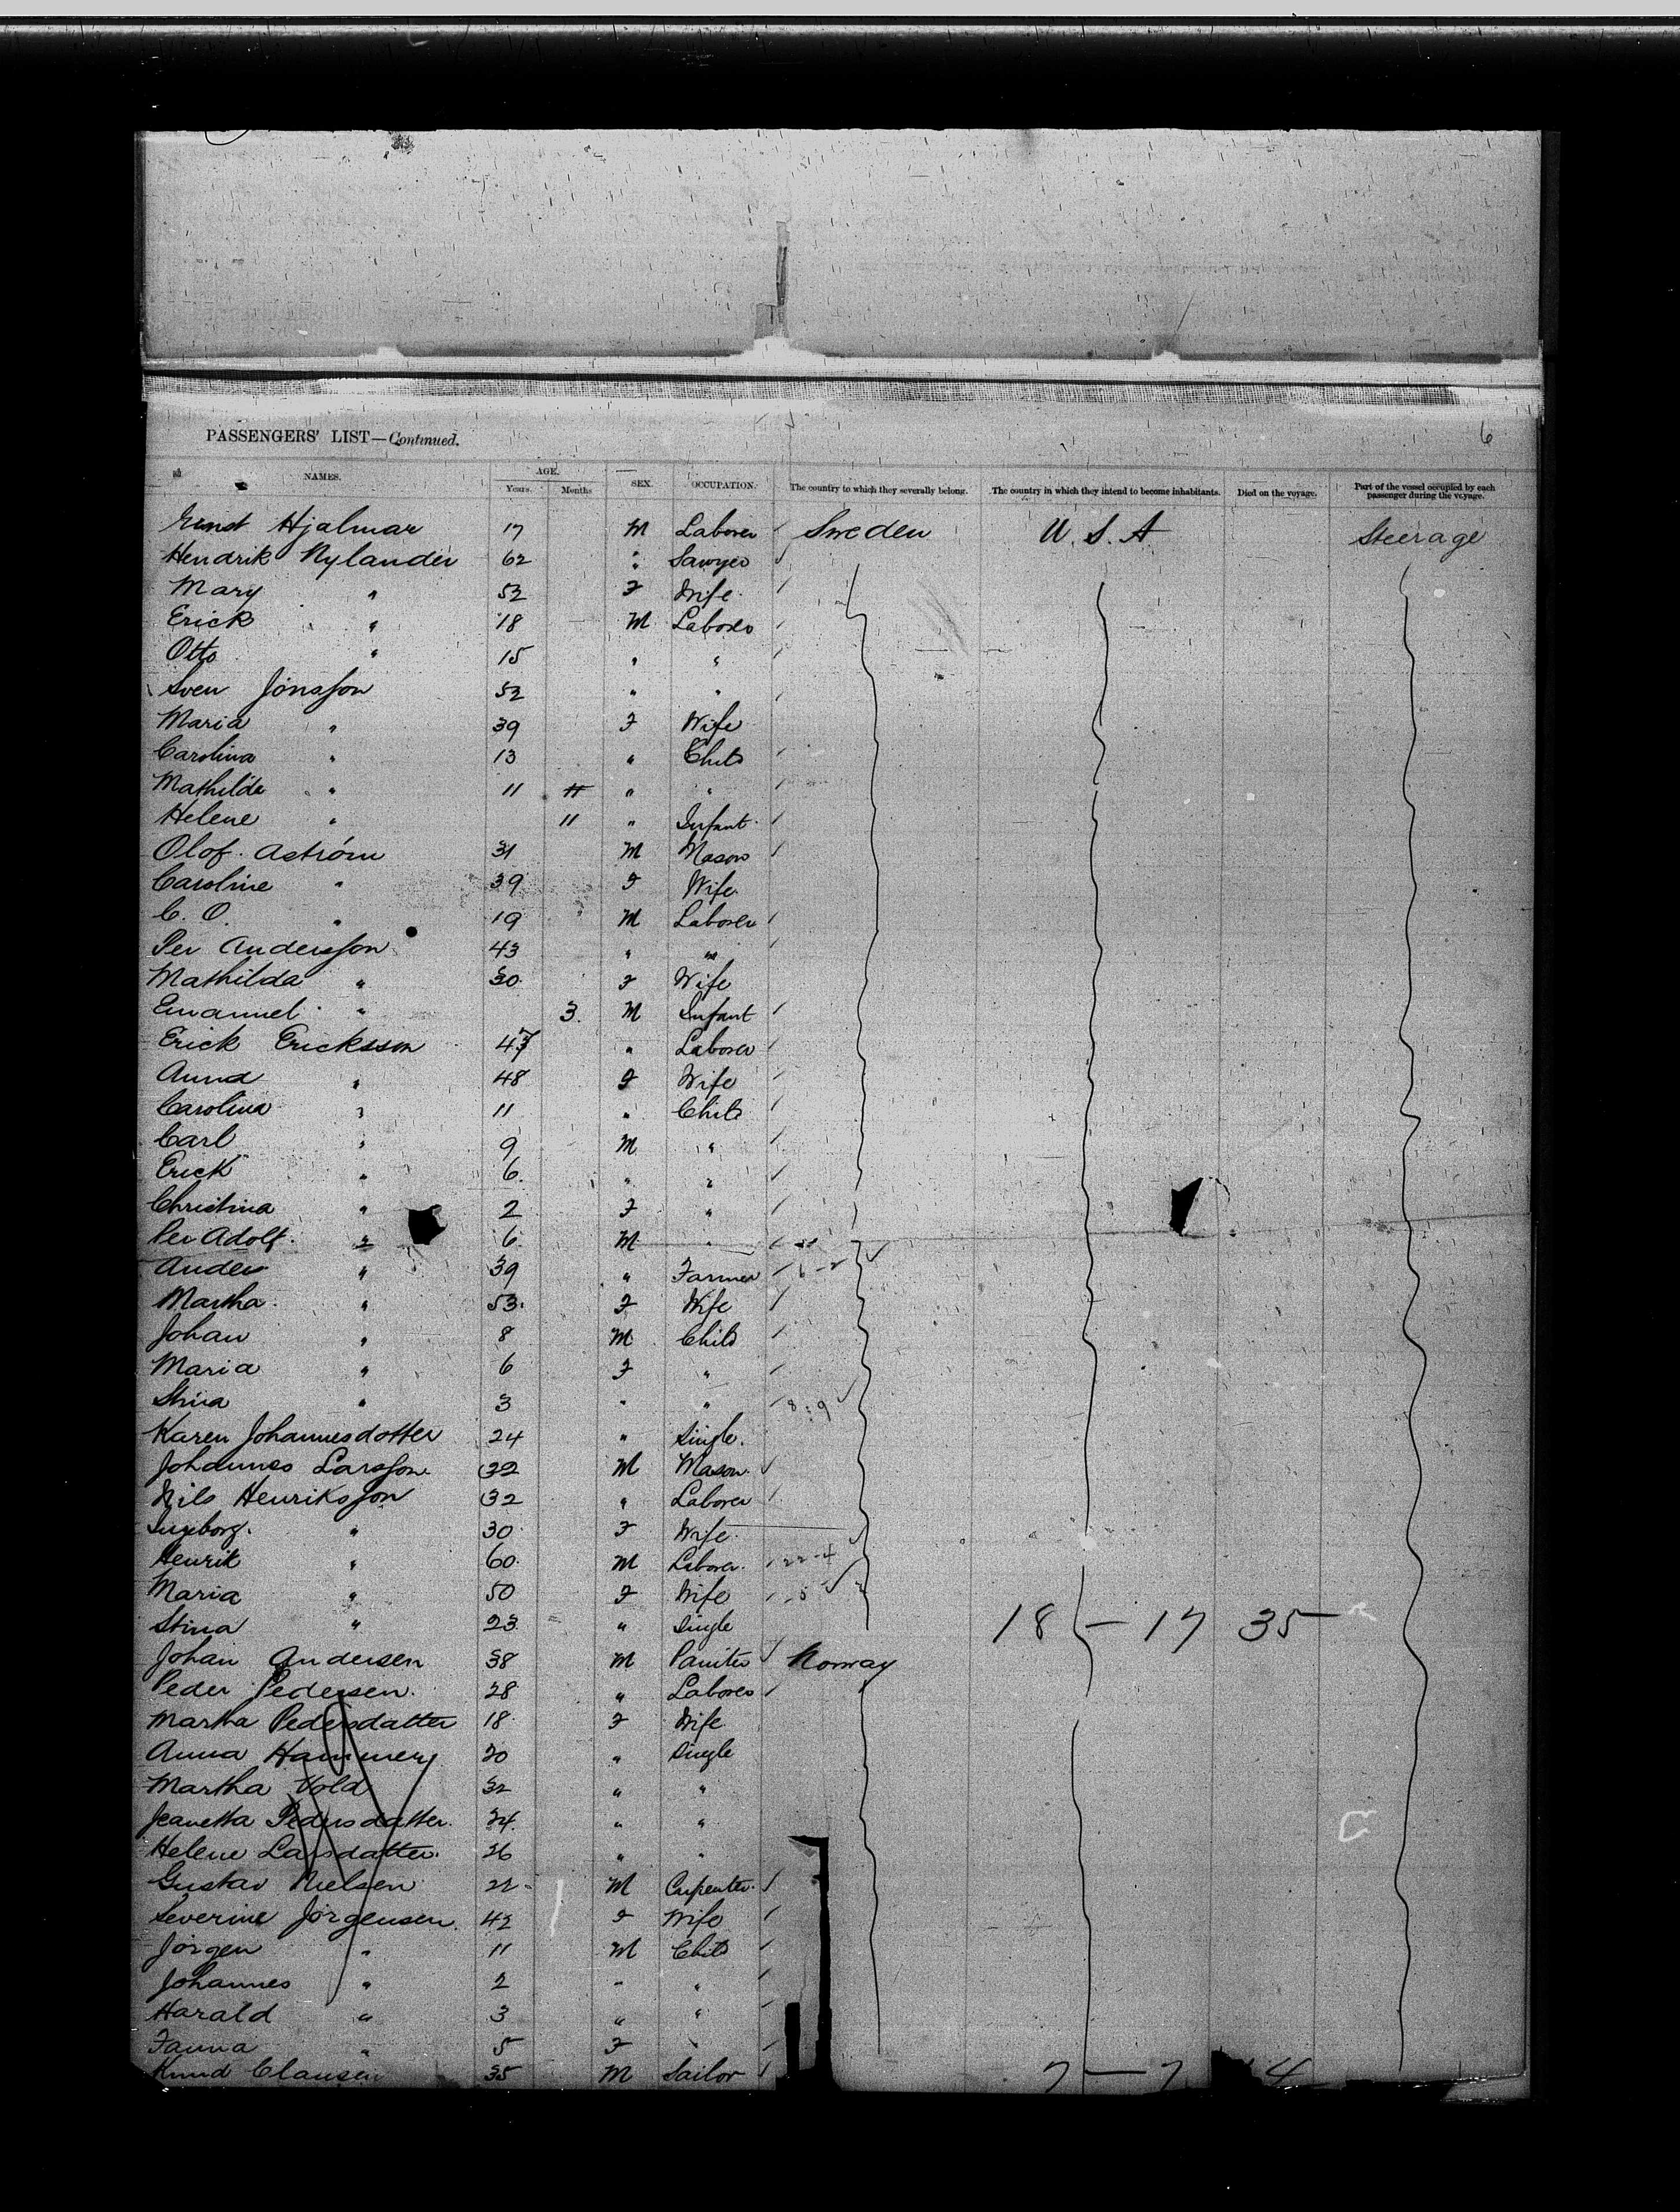 6
PASSENGERS' LIST—Continued.
NAMES. AGE. SEX. OCCUPATION. The country to which they severally belong. The country in which they intend to become inhabitants. Died on the voyage. Part of the vessel occupied by each passenger during the voyage.
Years. Months
Ernst Hjalmar 17 M Laborer Sweden U.S.A Steerage
Hendrik Nylander 62 " Sawyer
Mary " 52 F Wife
Erick " 18 M Laborer
Otto " 15 " "
Sven Jonsson 52 " "
Maria " 39 F Wife
Carolina " 13 " Child
Mathilda " 11 11 " "
Helene " 11 " Infant
Olof Aström 31 M Mason
Caroline " 39 F Wife
C. O. " 19 M Laborer
Per Andersson 43 " "
Mathilda " 30 F Wife
Emanuel " 3 M Infant
Erick Ericksson 47 " Laborer
Anna " 48 F Wife
Carolina " 11 " Child
Carl " 9 M "
Erick " 6 " "
Christina " 2 F "
Per Adolf " 6 M "
Ander " 39 " Farmer
Martha " 53 F Wife
Johan " 8 M Child
Maria " 6 F "
Stina " 3 " " 8:9
Karen Johannesdotter 24 " Single
Johannes Larsson 32 M Mason
Nils Henriksson 32 " Laborer
Ingeborg " 30 F Wife
Henrik " 60 M Laborer 22-4
Maria " 50 F Wife
Stina " 23 " Single 18 — 17 35
Johan Andersen 38 M Painter Norway
Peder Pedersen 28 " Laborer
Martha Pedersdatter 18 F Wife
Anna Hammery 20 " Single
Martha Vold 32 " "
Jeanetta Pedersdatter 24 " "
Helene Larsdatter 26 " "
Gustav Nielsen 22 M Carpenter
Severine Jörgensen 42 F Wife
Jörgen " 11 M Child
Johannes " 2 " "
Harald " 3 " "
Fanna " 5 F "
Knud Clausen 35 M Sailor 7 — 7 4